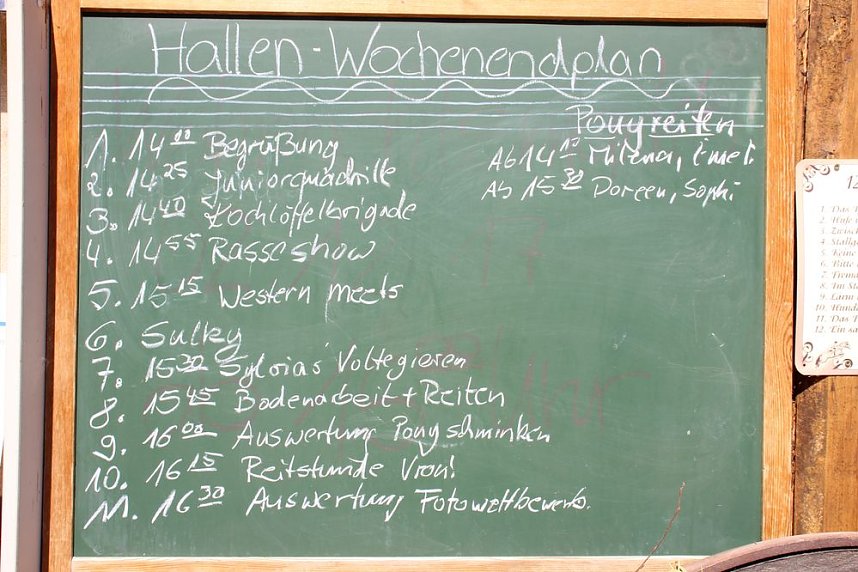 Hallen-Wochenendplan
Ponyreiten
Ab 14 10 Milena, Emel.
Ab 15 30 Doreen, Sophi
1. 14 00 Begrüßung
2. 14 25 Juniorquadrille
3. 14 40 Kochlöffelbrigade
4. 14 55 Rasseshow
5. 15 15 Western meets
6. Sulky
7. 15 30 Sylvias Voltegieren
8. 15 45 Bodenarbeit + Reiten
9. 16 00 Auswertung Ponyschminken
10. 16 15 Reitstunde Vroni
11. 16 30 Auswertung Fotowettbewerb.
12
1. Das
2. Hufe
3. Zwisch
4. Stallg
5. Keine
6. Bitte
7. Fremd
8. Im St
9. Lärm
10. Hunde
11. Das
12. Ein sa